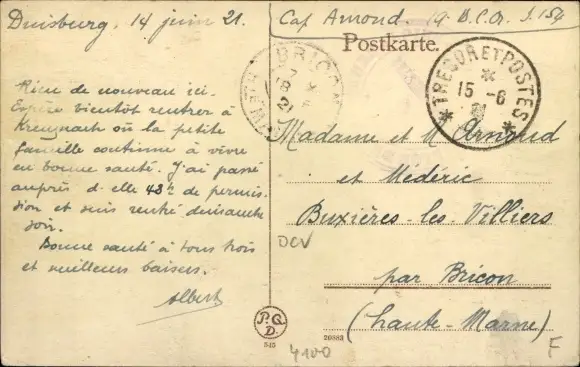 Duisburg, 14 juin 21.
Cap Arnould. 19e B.C.P. S. 154
Postkarte.
Rien de nouveau ici.
Espère bientôt rentrer à
Kreuznach où la petite
famille continue à vivre
en bonne santé. J'ai passé
auprès d'elle 48h de permis-
sion et suis rentré dimanche
soir.
Bonne santé à tous trois
et meilleurs baisers.
Albert
BRICON
18
21
TRESOR ET POSTES
15-6
21
Madame et M Arnould
et Médéric
Buxières-les-Villiers
par Bricon
(Haute-Marne)
DCV
P.G.
D.
345
20883
4100
F